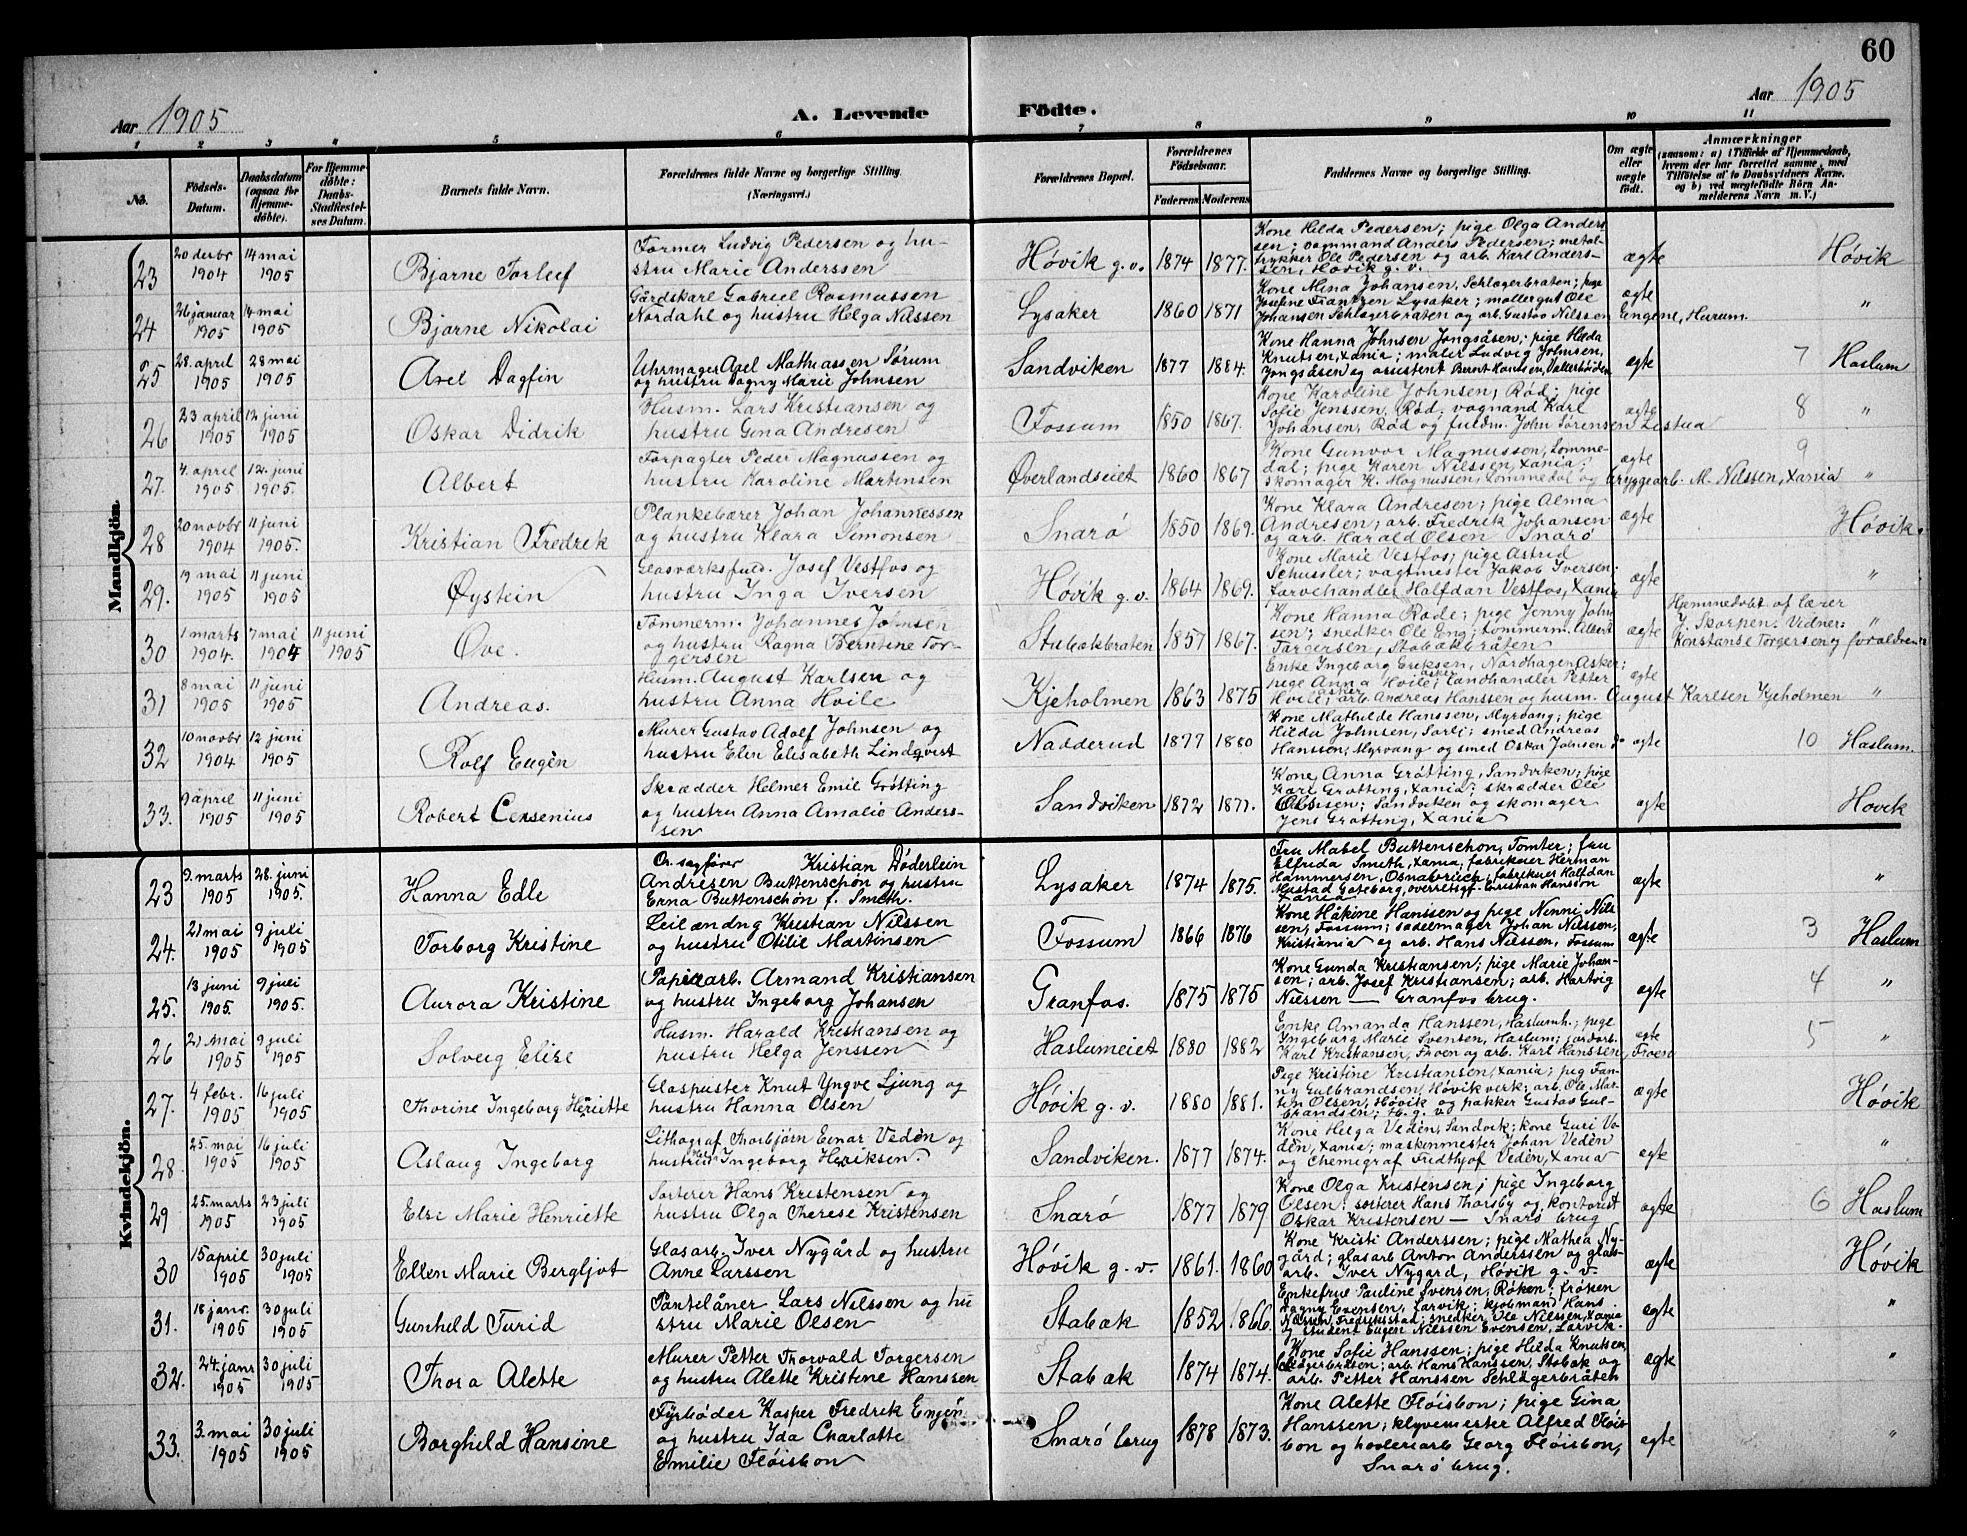 60
Aar 1905
A. Levende Födte.
Aar 1905
1 2 3 4 5 6 7 8 9 10 11
No.
Födsels-Datum.
Daabsdatum (ogsaa for Hjemmedöbte).
For Hjemmedöbte: Daabs-Stadfæstelses Datum.
Barnets fulde Navn.
Forældrenes fulde Navne og borgerlige Stilling. (Næringsvei.)
Forældrenes Bopæl.
Forældrenes Födselsaar.
Faderens Moderens
Faddernes Navne og borgerlige Stilling.
Om ægte eller uægte födt.
Anmærkninger
(saasom: a) i Tilfælde af Hjemmedaab, hvem der har forrettet samme, med Tilföielse af to Daabsvidners Navne, og b) ved uægtefödte Börn Anmelderens Navn m. V.)
Mandkjön.
23 20 decbr 1904 14 mai 1905 Bjarne Torleif
Former Ludvig Pedersen og hustru Marie Anderssen
Høvik g. v. 1874 1877.
Kone Hilda Pedersen; pige Olga Anderssen; vommand Anders Pedersen; metaltrykker Ole Pedersen og arb. Karl Anderssen, Høvik g. v.
ægte Høvik
24 26 januar 1905 14 mai 1905 Bjarne Nikolai
Gårdskarl Gabriel Rasmussen Nordahl og hustru Helga Nilssen
Lysaker 1860 1871
Kone Mina Johansen, Schlagerbråten; pige Josefine Frantzen Lysaker; møllergut Ole Johansen Schlagerbråten og arb. Gustav Nilssen Engene, Hurum.
ægte "
25 28 april 1905 28 mai 1905 Axel Dagfin
Uhrmager Axel Mathiassen Sørum og hustru Dagny Marie Johnsen
Sandviken 1877 1884.
Kone Hanna Johnsen Jongsåsen; pige Hilda Knutsen, Xania; maler Ludvig Johnsen, Jongsåsen og assistent Bernt Hanssen, Vallerhøiden
ægte 7 Haslum
26 23 april 1905 12 juni 1905 Oskar Didrik
Husm. Lars Kristiansen og hustru Gina Andresen
Fossum 1850 1867.
Kone Karoline Johnsen, Rød; pige Sofie Jenssen, Rød, vognmand Karl Johansen, Rød og fuldm. John Sørensen Listua
ægte 8 "
27. 4. april 1905 12. juni 1905. Albert
Forpagter Peder Magnussen og hustru Karoline Martinsen
Øverlandseiet 1860 1867
Kone Gunvor Magnussen, Lommedal; pige Karen Nilssen, Xania; skomager K. Magnussen, Lommedal og bryggearb. M. Nilssen, Xania
ægte 9 "
28 20 novbr 1904 11 juni 1905. Kristian Fredrik
Plankebærer Johan Johannessen og hustru Klara Simonsen
Snarø 1850 1869.
Kone Klara Andresen; pige Alma Andresen; arb. Fredrik Johansen og arb. Harald Olsen Snarø
ægte Høvik.
29. 19 mai 1905 11 juni 1905 Øystein
Glasværksfuld. Josef Vestfos og hustru Inga Iversen
Høvik g. v. 1864 1869.
Kone Marie Vestfos; pige Astrid Schussler; vagtmester Jakob Iversen. farvehandler Halfdan Vestfos, Xania
ægte "
30 1 marts 1904. 7 mai 1904 11 juni 1905 Ove.
Tømmerm. Johannes Johnsen og hustru Ragna Berntine Torgersen
Stabækbråten 1857 1867.
Kone Hanna Rode; pige Jenny Johnsen; snedker Ole Eng; tømmerm. Albert Torgersen, Stabækbråten
ægte Hjemmedøbt af lærer J. Skorpen. Vidner: Konstanse Torgersen og forældrene "
31 8 mai 1905 11 juni 1905 Andreas.
Husm. August Karlsen og hustru Anna Hvile
Kjeholmen 1863 1875
Enke Ingeborg Eriksen, Nordhagen Asker; pige Anna Hvile, asker; landhandler Petter Hvile, asker arb. Andreas Hanssen og husm. August Karlsen Kjeholmen
ægte "
32 10 novbr 1904 12 juni 1905 Rolf Eugèn
Murer Gustav Adolf Johnsen og hustru Elin Elisabeth Lindqvist
Nadderud 1877 1880
Kone Mathilde Hanssen, Myrvang; pige Hilda Johnsen, Sorli; smed Andreas Hanssen, Myrvang og smed Oskar Johnsen do
ægte 10 Haslum.
33. 9 april 1905 11 juni 1905 Robert Censenius
Skrædder Helmer Emil Grøtting og hustru Anna Amalie Anderssen
Sandviken 1872 1877.
Kone Anna Grøtting, Sandviken; pige Kari Grøtting, Xania; skrædder Ole Olssen; Sandviken og skomager Jens Grøtting, Xania
ægte Høvik
Kvindekjön.
23 9. marts 1905 28. juni 1905. Hanna Edle
Or. sagfører Kristian Døderlein Andresen Buttenschøn og hustru Erna Buttenschøn f. Smith.
Lysaker 1874 1875.
Fru Mabel Buttenschøn, Tomter; fru Elfrida Smith, Xania; fabrikeier Herman Hammersen, Osnabrück; fabrikeier Halfdan Mustad Gøteborg, overretsgf. Kristian Hansson Xania
ægte "
24. 21 mai 1905 9 juli 1905 Torborg Kristine
Leilændng Kristian Nilssen og hustru Otilie Martinsen
Fossum 1866 1876
Kone Håkine Hanssen og pige Nenni Nilssen, Fossum; sadelmager Johan Nilssen, Kristiania og arb. Hans Nilssen, Fossum
ægte 3 Haslum
25. 13 juni 1905. 9 juli 1905. Aurora Kristine
Papirarb. Armand Kristiansen og hustru Ingeborg Johansen
Granfos. 1875 1875
Kone Gunda Kristiansen; pige Marie Johansen; arb. Josef Kristiansen; arb. Hartvig Nilssen — Granfos brug.
ægte 4 "
26 21 mai 1905 9 juli 1905 Solveig Elise
Husm. Harald Kristiansen og hustru Helga Jenssen
Haslumeiet 1880 1882
Enke Amanda Hanssen, Haslumh.; pige Ingeborg Marie Svensen, Haslum; jordarb. Karl Kristiansen, Thoen og arb. Karl Hanssen, Troen
ægte 5 "
27. 4 febr. 1905 16 juli 1905 Thorine Ingeborg Henriette
Glaspuster Knut Yngve Ljung og hustru Hanna Olsen
Høvik g. v. 1880 1881.
Pige Kristine Kristiansen, Xania; pig Fanny Gulbrandsen, Høvik verk; arb. Ole Martin Olsen, Høvik og pakker Gustav Gulbrandsen; H. g. v.
ægte Høvik
28. 25. mai 1905 16 juli 1905 Aslaug Ingeborg
Lithograf Thorbjørn Einar Vedèn og hustru Ingeborg Henriksen.
Sandviken. 1877 1874.
Kone Helga Vedèn, Sandvik; kone Guri Vedèn, Xania; maskinmester Johan Vedèn og Chemigraf Fredthjof Vedèn, Xania
ægte "
29 25. marts 1905 23 juli 1905 Elsi Marie Henriette
Sorterer Hans Kristensen og hustru Olga Therese Kristensen
Snarø 1877 1879
Kone Olga Kristensen; pige Ingeborg Olsen; sorterer Hans Thorsby og kontorist Oskar Kristensen — Snarø brug
ægte 6 Haslum
30 15 april 1905 30 juli 1905 Ellen Marie Bergljot
Glasarb. Iver Nygård og hustru Anne Larssen
Høvik g. v. 1861. 1860
Kone Kristi Anderssen; pige Mathea Nygård; glasarb Anton Anderssen og glasarb. Iver Nygard, Høvik g. v.
ægte Høvik
31. 18 janr. 1905 30 juli 1905 Gunhild Turid
Pantelåner Lars Nilssen og hustru Marie Olsen
Stabæk 1852 1866.
Enkefrue Pauline Svensen, Røken; frøken Dagny Evensen, Larvik; kjøbmand Hans Nilssen, Fredriksstad; snedker Ole Nilssen, Xania og student Eugen Nilssen Evensen, Larvik.
ægte "
32. 24. janr 1905 30 juli 1905 Thora Alette
Murer Petter Thorvald Torgersen og hustru Alette Kristine Hanssen
Stabæk 1874 1874.
Kone Sofie Hanssen; pige Hilda Knutsen, Schlagerbråten; arb. Hans Hanssen, Stabæk og arb. Petter Hanssen Schlagerbråten
ægte "
33. 3. mai 1905 30 juli 1905 Borghild Hansine
Fyrbøder Kasper Fredrik Engen og hustru Ida Charlotte Emilie Fløisbon
Snarø brug 1878 1873.
Kone Alette Fløisbon; pige Gina Hanssen; klyvemester Alfred Fløisbon og høvleriarb Georg Fløisbon, Snarø brug.
ægte "